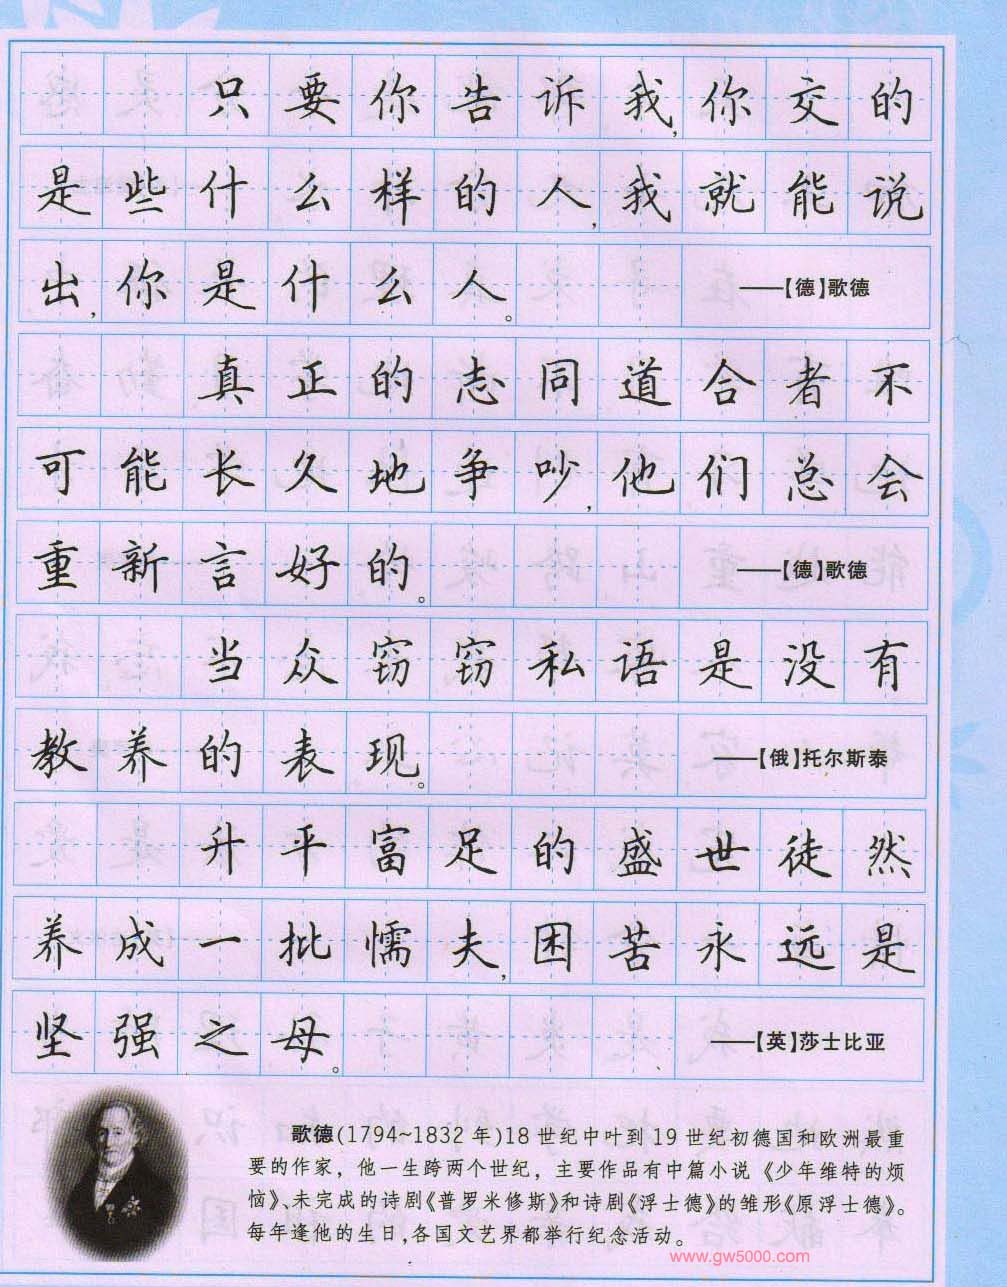 只要你告诉我,你交的
是些什么样的人,我就能说
出,你是什么人。 ——【德】歌德
真正的志同道合者不
可能长久地争吵,他们总会
重新言好的。 ——【德】歌德
当众窃窃私语是没有
教养的表现。 ——【俄】托尔斯泰
升平富足的盛世徒然
养成一批懦夫,困苦永远是
坚强之母。 ——【英】莎士比亚
歌德(1794~1832年)18世纪中叶到19世纪初德国和欧洲最重
要的作家，他一生跨两个世纪，主要作品有中篇小说《少年维特的烦
恼》、未完成的诗剧《普罗米修斯》和诗剧《浮士德》的雏形《原浮士德》。
每年逢他的生日,各国文艺界都举行纪念活动。
www.gw5000.com